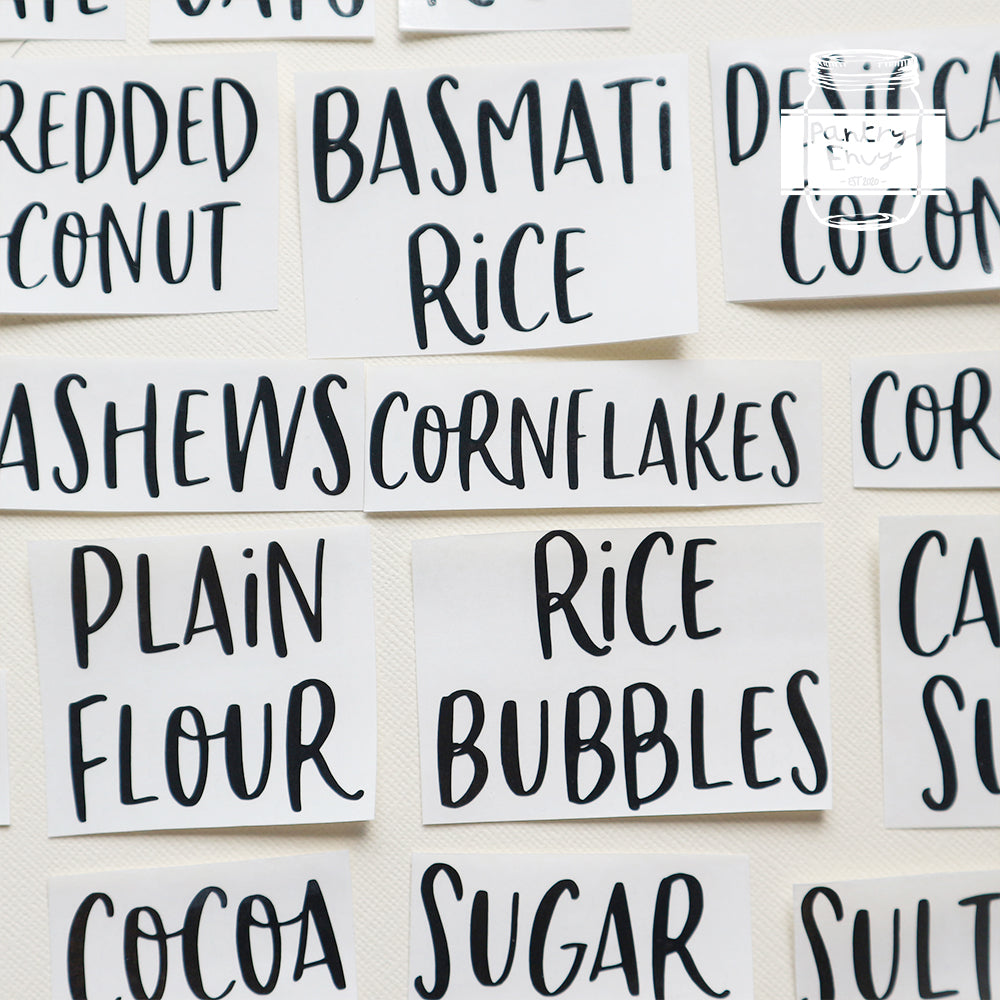 REDDED
CONUT
BASMATi
RiCE
DESICCA
COCON
Pantry
Envy
- EST 2020 -
ASHEWS
CORNFLAKES
COR
PLAiN
FLOUR
RiCE
BUBBLES
CA
SU
COCOA
SUGAR
SULT